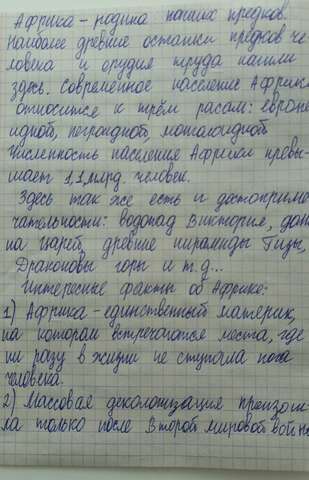 Африка - родина наших предков.
Наиболее древние останки предков че-
ловека и орудия труда нашли
здесь. Современное население Африки
относится к трём расам: европе
идной, негроидной, монголоидной.
Численность население Африки превы-
шает 1,1 млрд. человек.
Здесь так же есть и достоприме
чательности: водопад Виктория, дол
на царей, древние пирамиды Гизы,
Драконовы горы и т.д...
Интересные факты об Африке:
1) Африка - единственный материк,
на котором встречаются места, где
ни разу в жизни не ступала нога
человека.
2) Массовая деколонизация произош-
ла только после Второй мировой войны